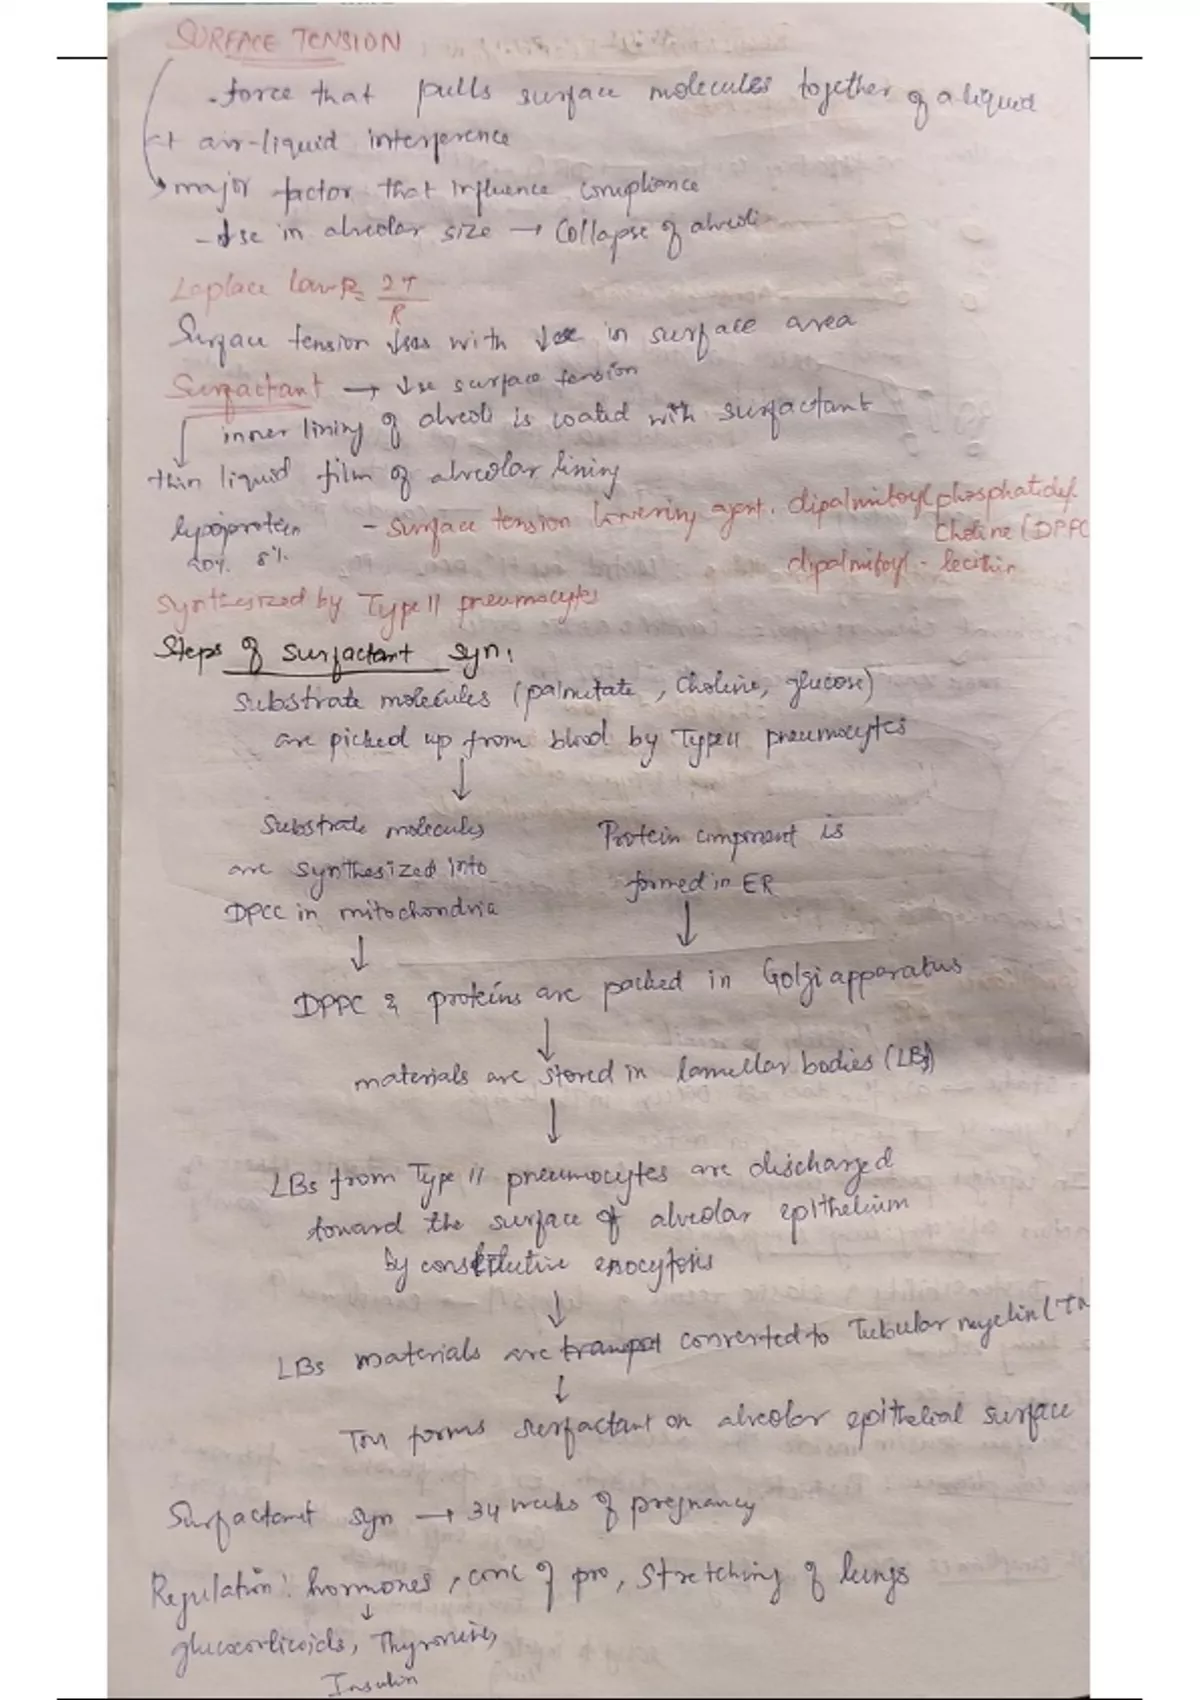 SURFACE TENSION
. force that pulls surface molecules together of a liquid
at air-liquid interference
major factor that influence compliance
- ↓se in alveolar size → Collapse of alveoli
Laplace law P = 2T/R
Surface tension ↓ses with ↓se in surface area
Surfactant → ↓se surface tension
inner lining of alveoli is coated with surfactant
thin liquid film of alveolar lining
- surface tension lowering agent. dipalmitoyl phosphatidyl
choline (DPPC
8%
dipalmitoyl - lecithin
Synthesized by Type II pneumocytes
Steps of surfactant syn:
Substrate molecules (palmitate, choline, glucose)
are picked up from blood by Type II pneumocytes
↓
Substrate molecules
are synthesized into
DPCC in mitochondria
↓
Protein component is
formed in ER
↓
DPPC & proteins are packed in Golgi apparatus
↓
materials are stored in lamellar bodies (LBs)
↓
LBs from Type II pneumocytes are discharged
toward the surface of alveolar epithelium
by constitutive exocytosis
↓
LBs materials are converted to Tubular myelin (TM
↓
TM forms surfactant on alveolar epithelial surface
Surfactant syn → 34 weeks of pregnancy
Regulation: hormones, conc of pro, stretching of lungs
↓
glucocorticoids, Thyroxine,
Insulin